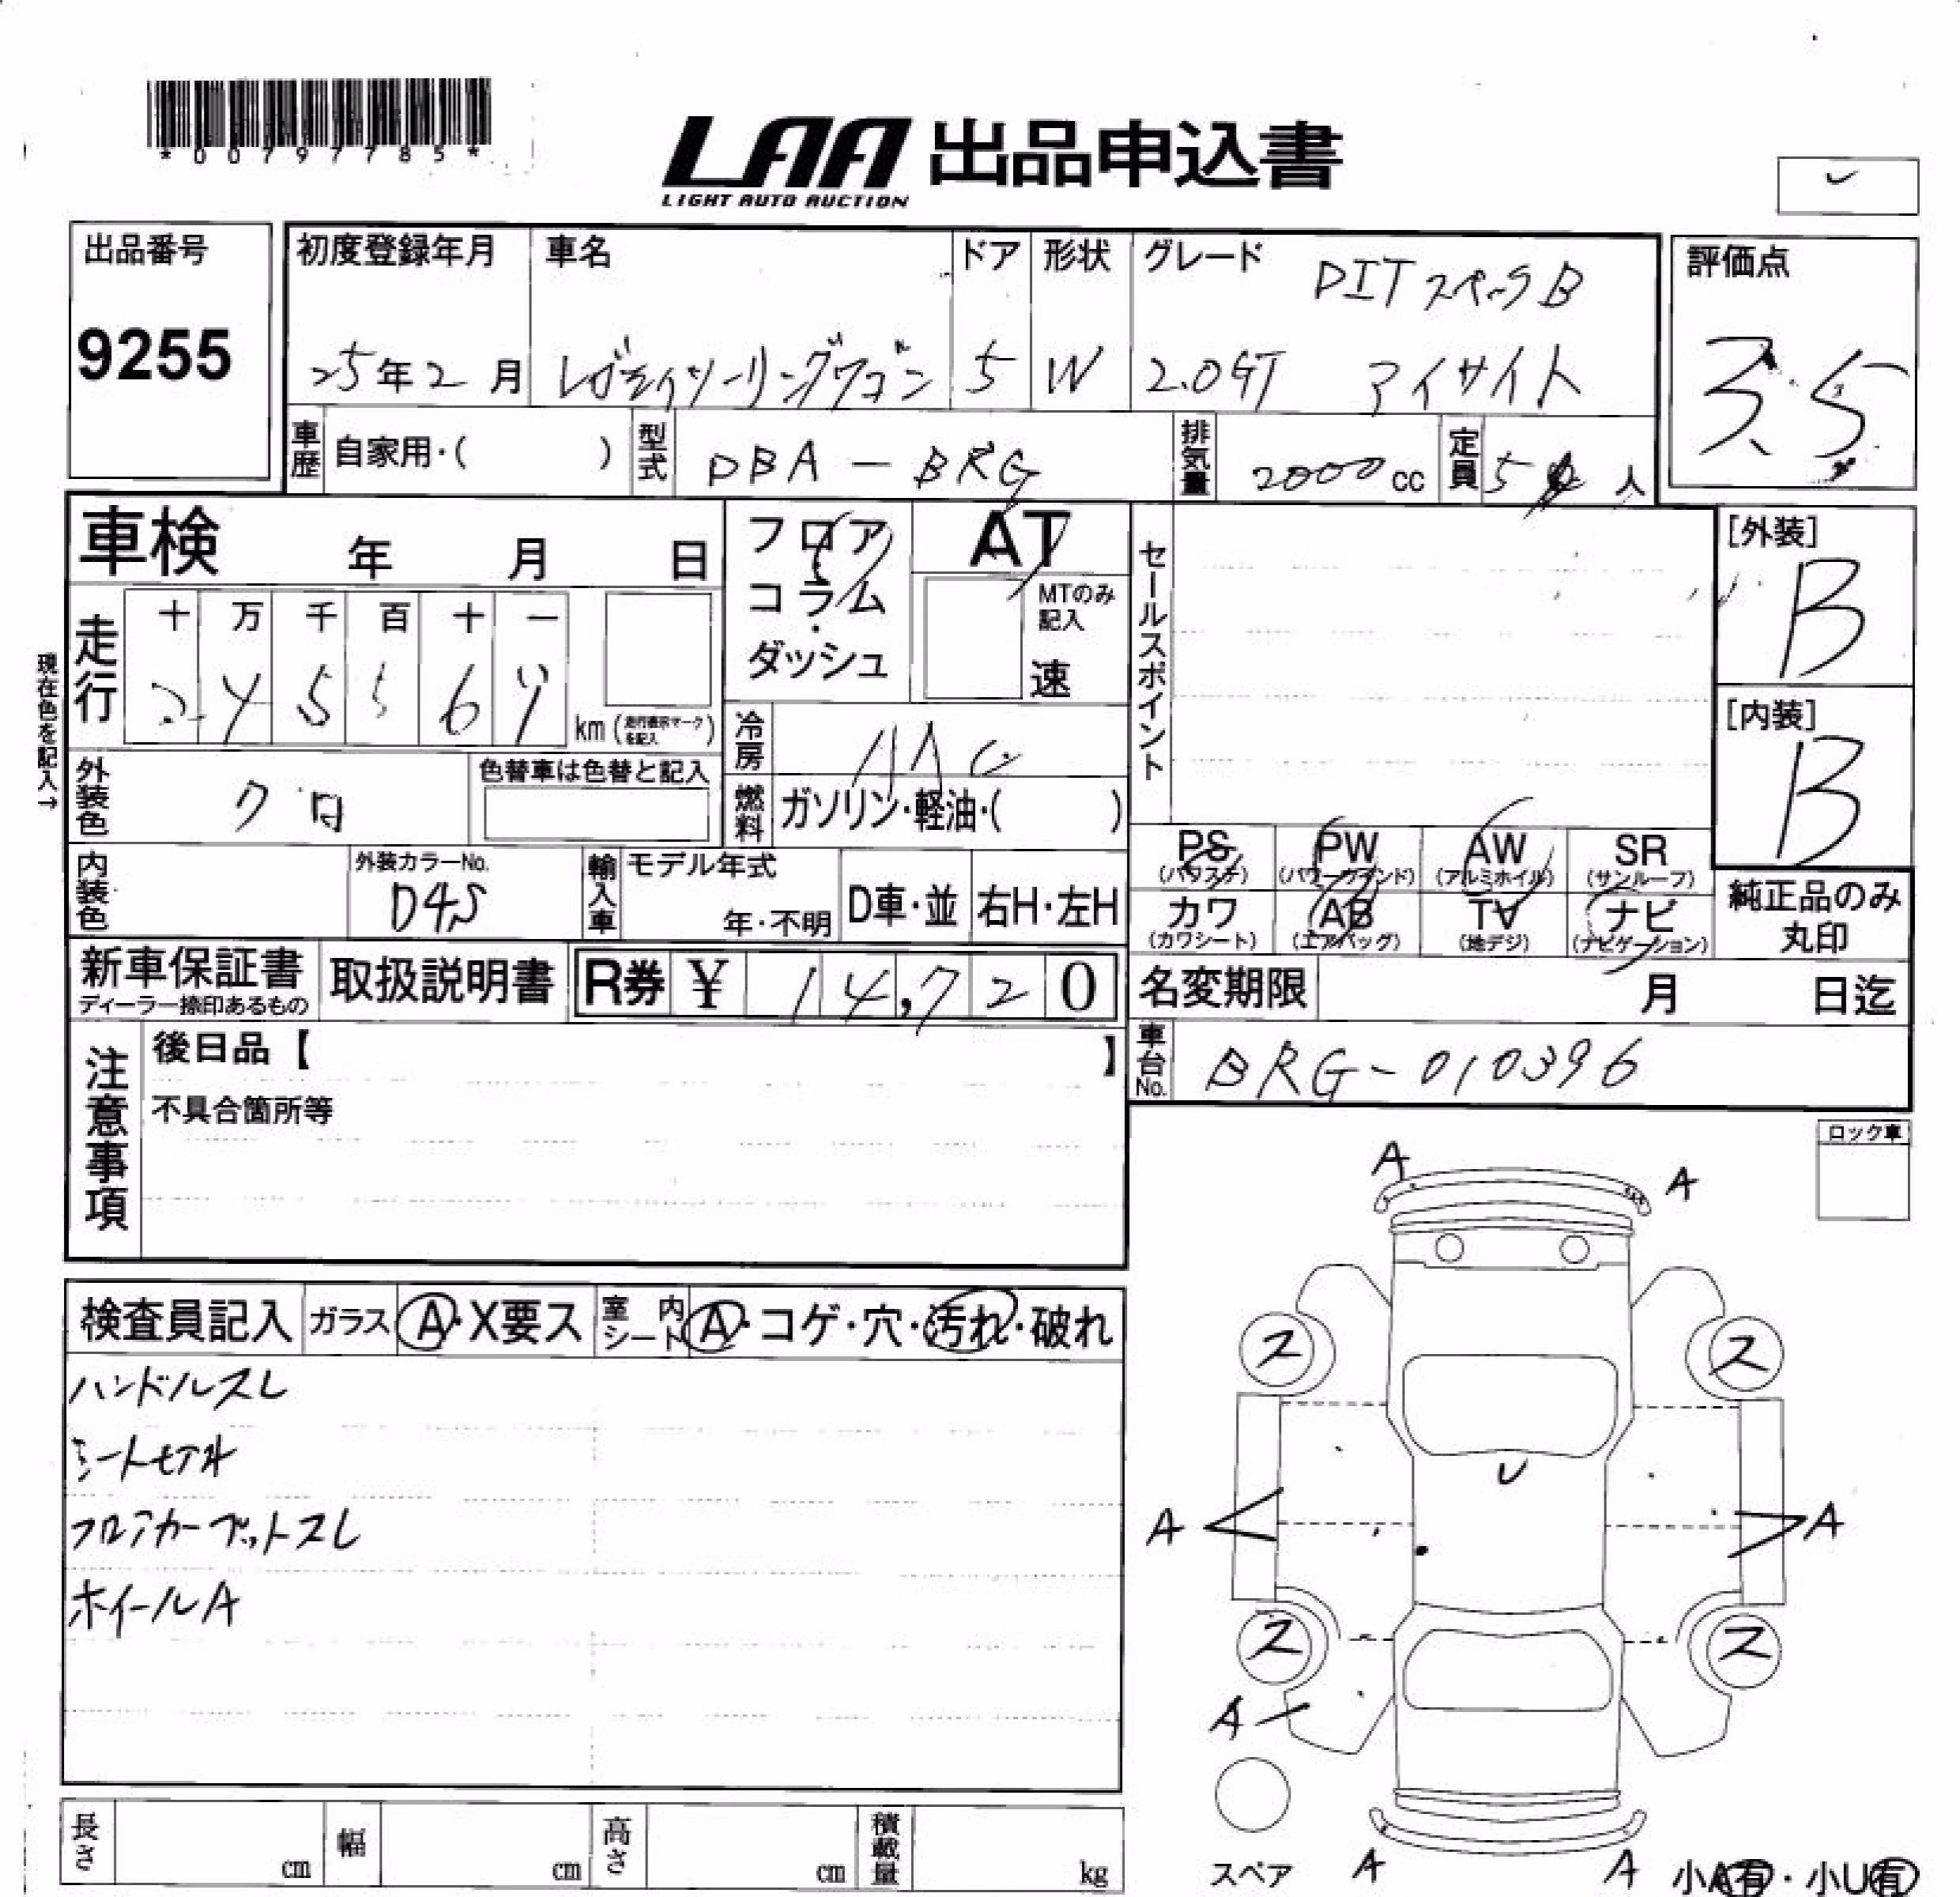 *00797785*
LAA 出品申込書
LIGHT AUTO AUCTION
出品番号
9255
初度登録年月
25年2月
車名
レガシィツーリングワゴン
ドア
5
形状
W
グレード
DITスペックB
2.0GT アイサイト
評価点
3.5
車歴
自家用・( )
型式
DBA-BRG
排気量
2000cc
定員
5人
車検 年 月 日
フロア
コラム
・
ダッシュ
AT
MTのみ
記入
速
セールスポイント
[外装]
B
[内装]
B
現在色を記入→
走行
十 万 千 百 十 一
2 4 5 5 6
km (走行表示マークを記入)
冷房
AAC
外装色
クロ
色替車は色替と記入
燃料
ガソリン・軽油・( )
PS
(パワステ)
PW
(パワーウインド)
AW
(アルミホイル)
SR
(サンルーフ)
内装色
外装カラーNo.
D4S
輸入車
モデル年式
年・不明
D車・並
右H・左H
カワ
(カワシート)
AB
(エアバッグ)
TV
(地デジ)
ナビ
(ナビゲーション)
純正品のみ
丸印
新車保証書
ディーラー捺印あるもの
取扱説明書
R券 ¥ 14,720
名変期限 月 日迄
注意事項
後日品【 】
不具合箇所等
車台No.
BRG-010396
ロック車
A A
検査員記入 ガラス A・X要ス 室内シート A・コゲ・穴・汚れ・破れ
ハンドルスレ
フロアカーペットスレ
ホイールA
ス ス
U
A A
ス ス
A
スペア
A A
小A有・小U有
長さ cm 幅 cm 高さ cm 積載量 kg